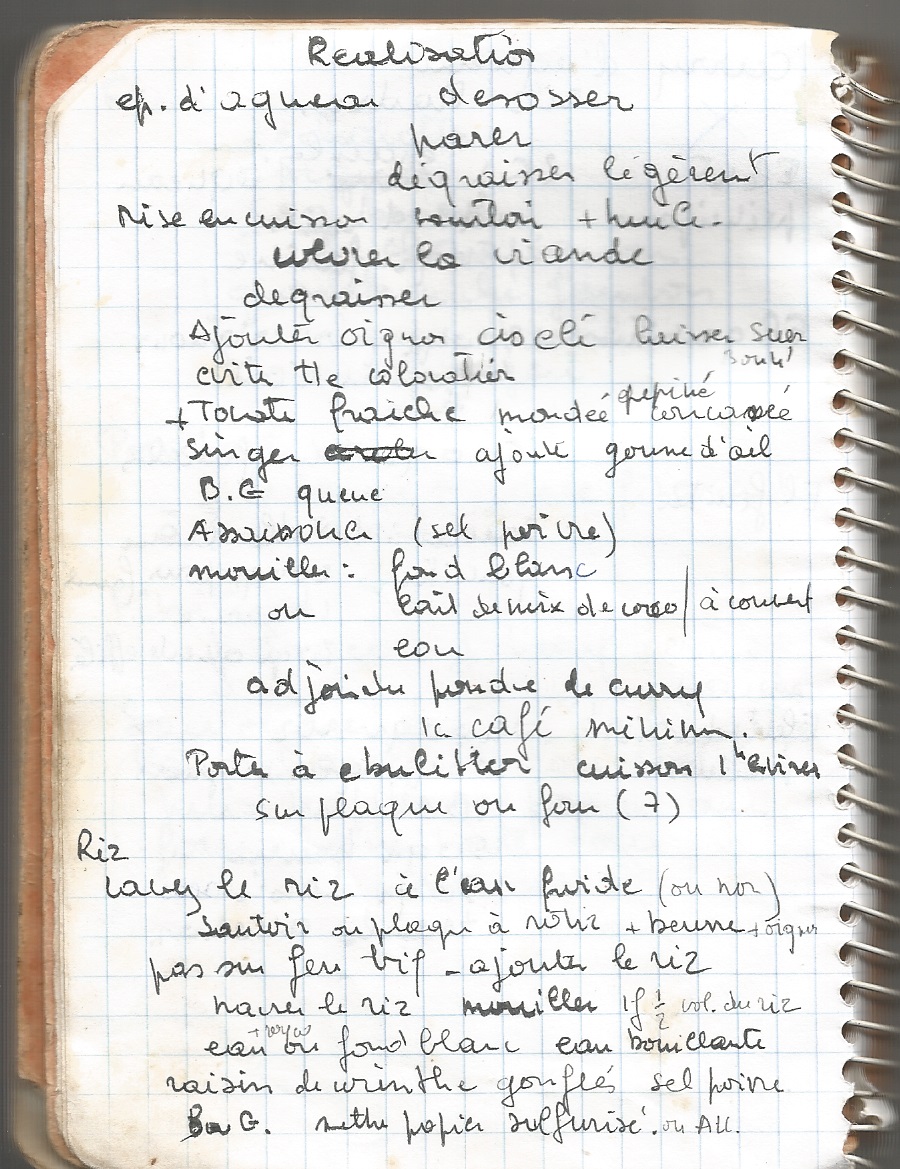 Realisation
ep. d'agneau desosser
parer
dégraisser légèrent
Mise en cuisson sautoir + huile.
colorer la viande
degraisser
Ajouter oignon ciselé laisser suer
evite tte coloration
+ Tomate fraiche mondée épépiné concassé
Singer ajoute gousse d'ail
B.G queue
Assaisonner (sel poivre)
mouiller : fond blanc
ou lait de noix de coco / à couvert
eau
adjoindre poudre de curry
1c café minim.
Porter à ebulition cuisson 1h environ
sur plaque ou four (7)
Riz
Lavez le riz à l'eau froide (ou non)
Sautoir ou plaque à rôtir + beurre + oignon
pas sur feu vif - ajouter le riz
nacrer le riz mouiller 1f 1/2 vol. du riz
eau ou fond blanc eau bouillante
raisin de corinthe gonflés sel poivre
B G. mettre papier sulfurisé. ou Alu.